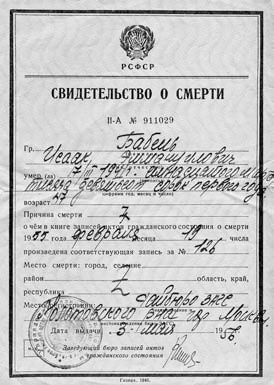 РСФСР
СВИДЕТЕЛЬСТВО О СМЕРТИ
II-А № 911029
Гр. Бабель
Исаак Эммануилович
умер (ла) 17/III 1941 г.
тысяча девятьсот сорок первого года
возраст 47
Причина смерти Z
о чём в книге записей актов гражданского состояния о смерти
1955 года февраля месяца 19 числа
произведена соответствующая запись за № 126
Место смерти: город, селение
район Z область, край,
республика
Место регистрации
Дата выдачи 5 мая 1956 г.
Заведующий бюро записей актов
гражданского состояния